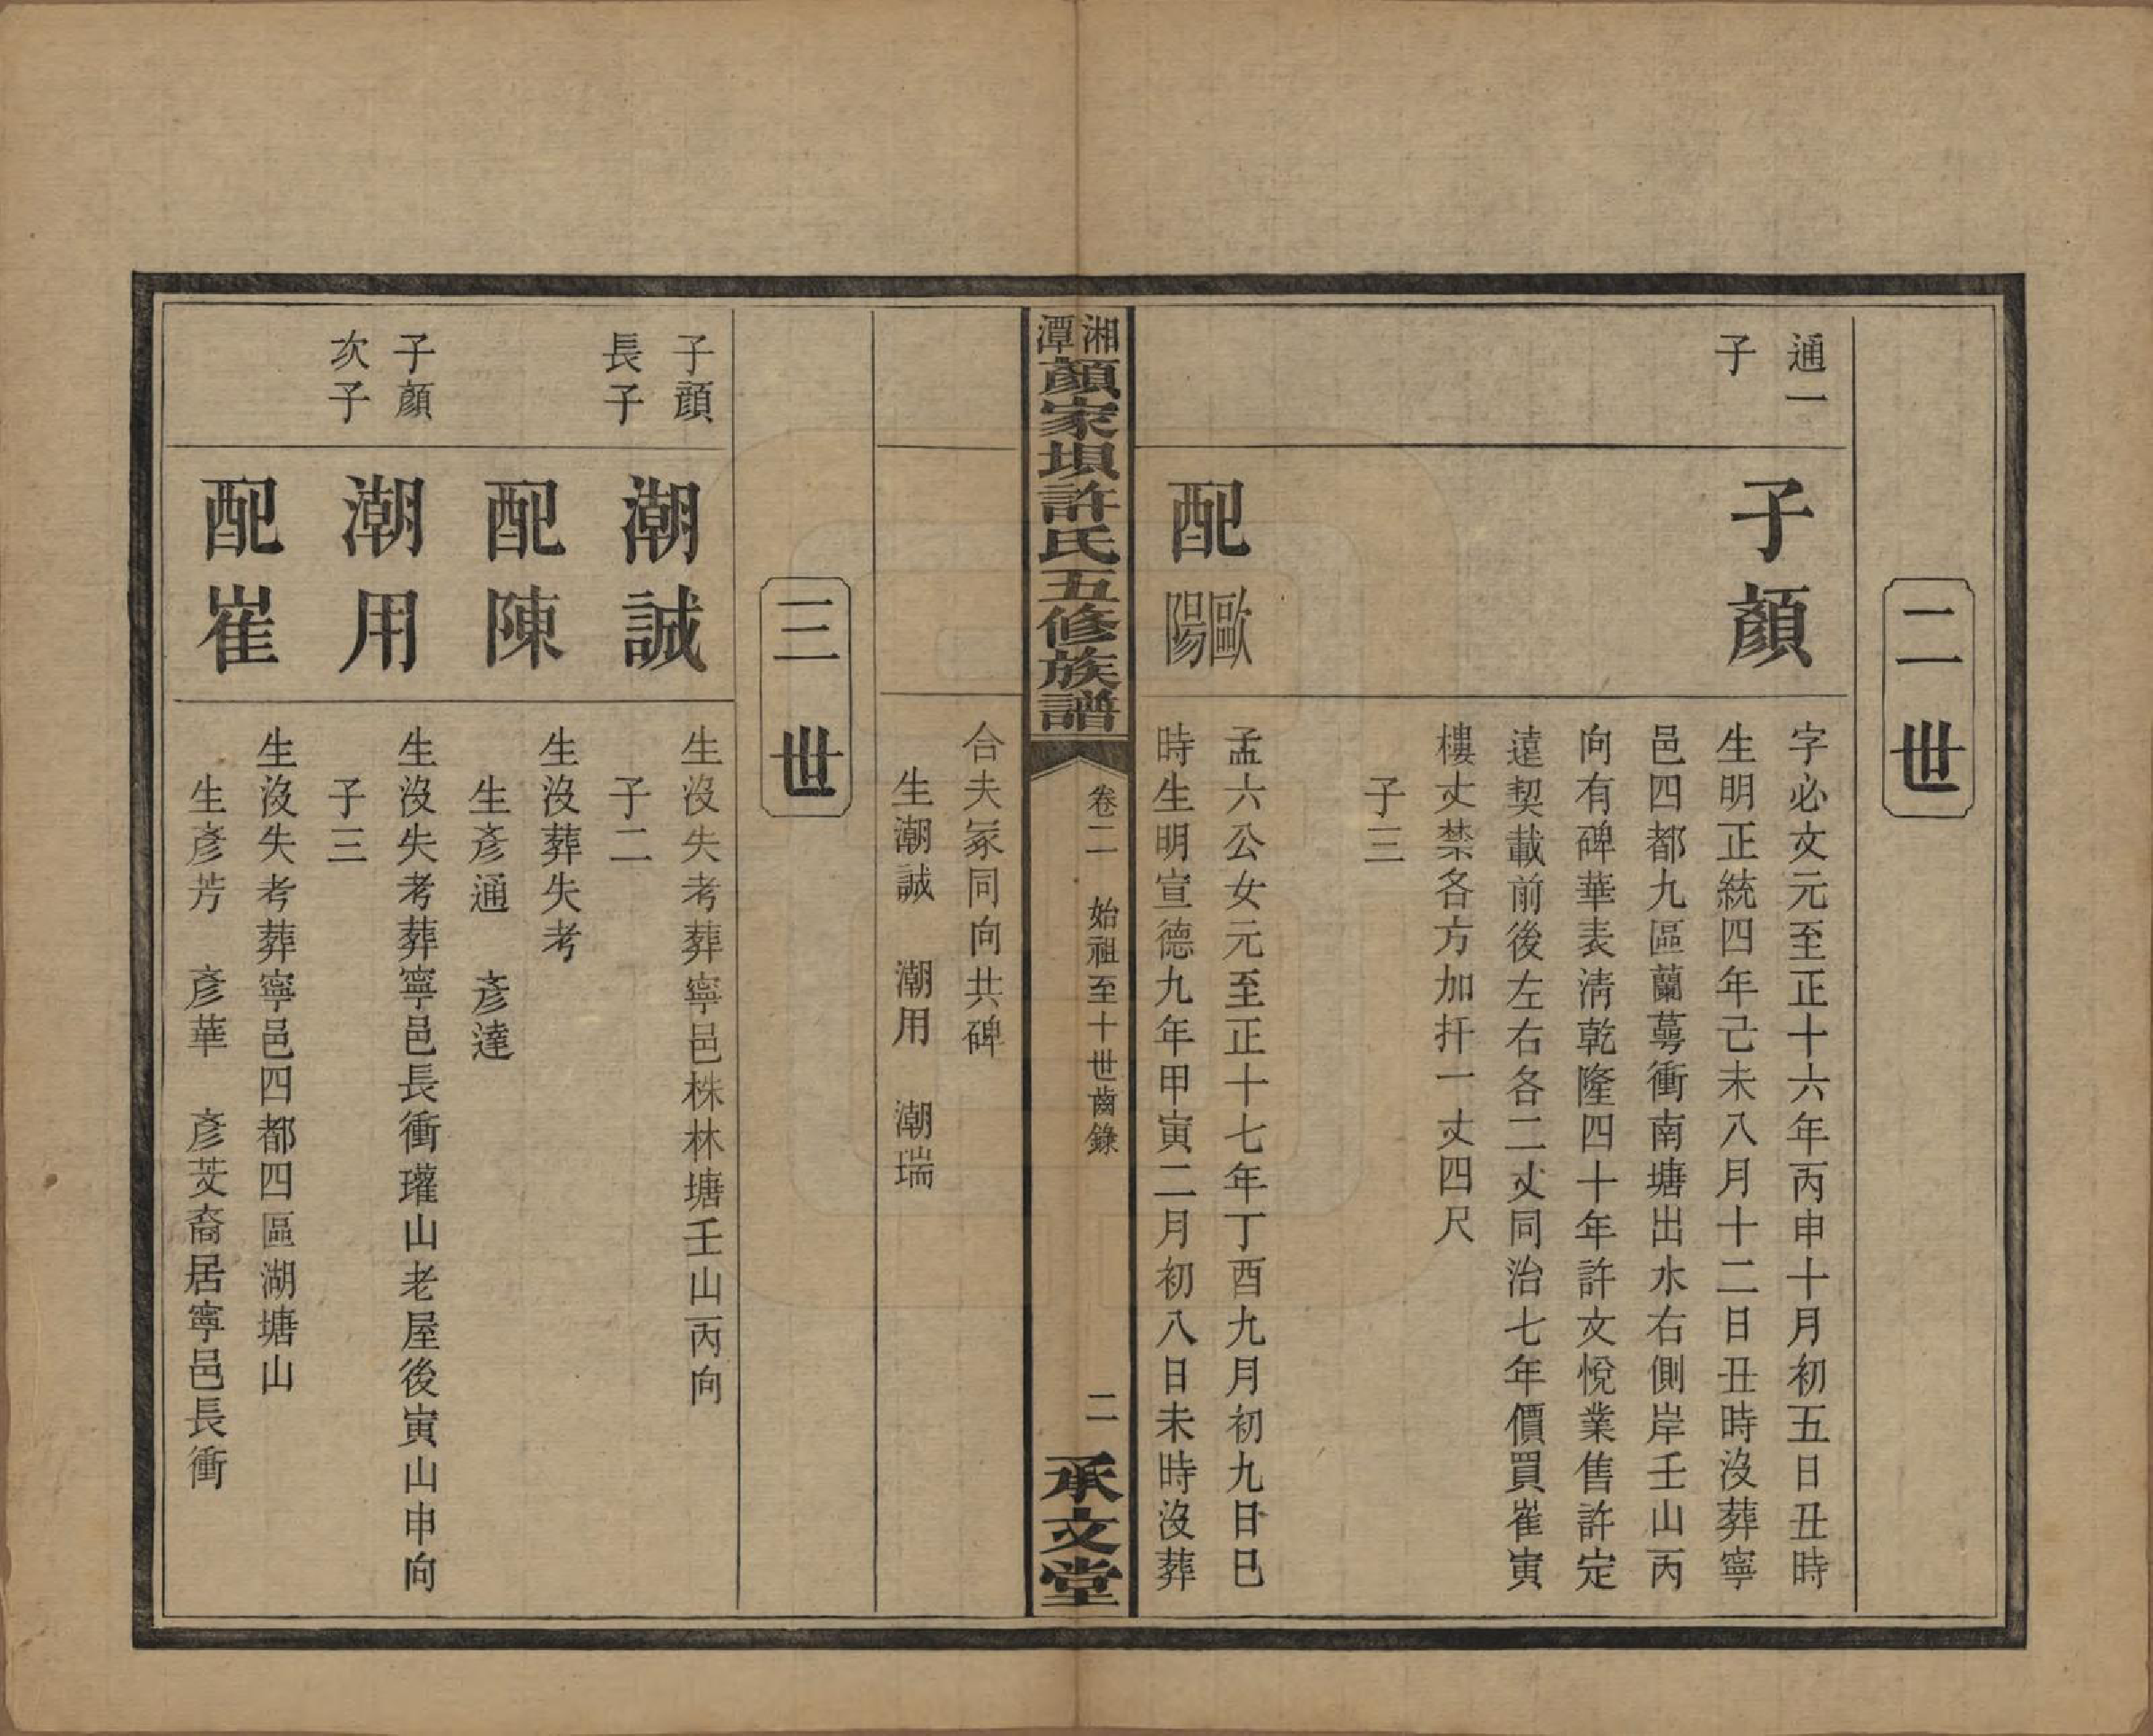 二世
通一
子
子顏
字必文元至正十六年丙申十月初五日丑時
生明正統四年己未八月十二日丑時沒葬寧
邑四都九區蘭蕚衝南塘出水右側岸壬山丙
向有碑華表淸乾隆四十年許文悅業售許定
遠契載前後左右各二丈同治七年價買崔寅
樓丈禁各方加扞一丈四尺
子三
配歐陽
孟六公女元至正十七年丁酉九月初九日巳
時生明宣德九年甲寅二月初八日未時沒葬
湘潭顏家埧許氏五修族譜
卷二 始祖至十世齒錄
二
承文堂
合夫冢同向共碑
生潮誠 潮用 潮瑞
三世
子顏
長子
潮誠
生沒失考葬寧邑株林塘壬山丙向
子二
配陳
生沒葬失考
生彥通 彥達
子顏
次子
潮用
生沒失考葬寧邑長衝瓘山老屋後寅山申向
子三
配崔
生沒失考葬寧邑四都四區湖塘山
生彥芳 彥華 彥芠裔居寧邑長衝